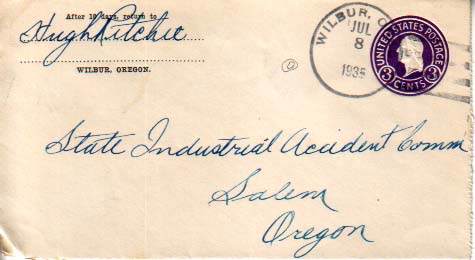 After 10 days, return to
Hugh Ritchie
WILBUR, OREGON.
WILBUR, O
JUL
8
1935
UNITED STATES POSTAGE
3 CENTS 3
State Industrial Accident Comm
Salem
Oregon